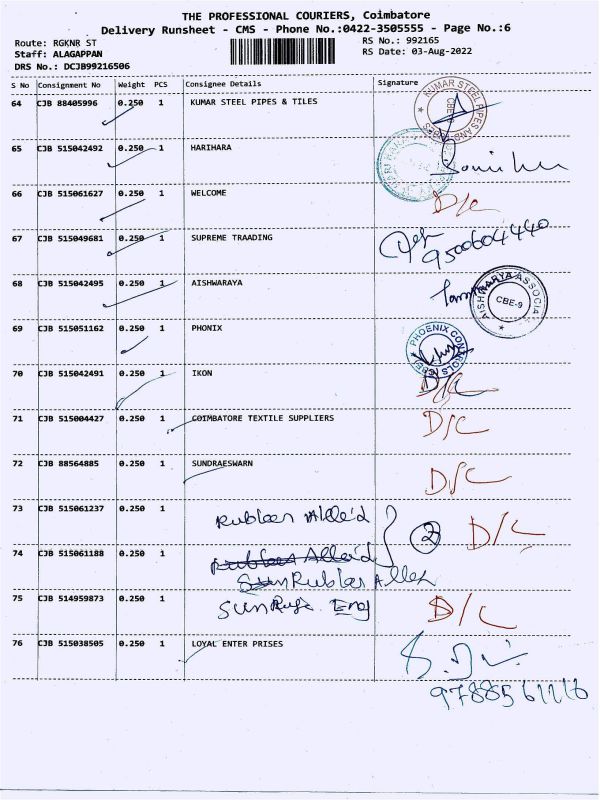 THE PROFESSIONAL COURIERS, Coimbatore
Delivery Runsheet - CMS - Phone No.:0422-3505555 - Page No.:6
Route: RGKNR ST
RS No.: 992165
Staff: ALAGAPPAN
RS Date: 03-Aug-2022
DRS No.: DCJB99216506
S No Consignment No Weight PCS Consignee Details Signature
64 CJB 88405996 0.250 1 KUMAR STEEL PIPES & TILES
KUMAR STEEL PIPES AND
65 CJB 515042492 0.250 1 HARIHARA
66 CJB 515061627 0.250 1 WELCOME D/C
67 CJB 515049681 0.250 1 SUPREME TRAADING
9500604440
68 CJB 515042495 0.250 1 AISHWARAYA
AISHWARYA ASSOCIA
CBE-9
69 CJB 515051162 0.250 1 PHONIX
PHOENIX CONTROLS
70 CJB 515042491 0.250 1 IKON D/C
71 CJB 515004427 0.250 1 COIMBATORE TEXTILE SUPPLIERS D/C
72 CJB 88564885 0.250 1 SUNDRAESWARN D/C
73 CJB 515061237 0.250 1 Rubber Allied 2 D/C
74 CJB 515061188 0.250 1
75 CJB 514959873 0.250 1 D/C
76 CJB 515038505 0.250 1 LOYAL ENTER PRISES